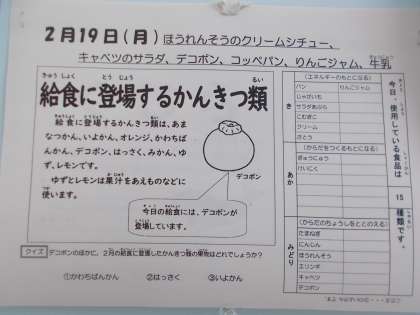 2月19日(月) ほうれんそうのクリームシチュー、
キャベツのサラダ、デコポン、コッペパン、りんごジャム、牛乳
給食に登場するかんきつ類
給食に登場するかんきつ類は、あま
なつかん、いよかん、オレンジ、かわちば
んかん、デコポン、はっさく、みかん、ゆ
ず、レモンです。
ゆずとレモンは果汁をあえものなどに
使います。
デコポン
今日の給食には、デコポンが
登場しています。
クイズ デコポンのほかに、2月の給食に登場したかんきつ類の果物はどれでしょうか?
①かわちばんかん ②はっさく ③いよかん
き
(エネルギーのもとになる)
パン りんごジャム
じゃがいも
サラダあぶら
こむぎこ
クリーム
さとう
あか
(からだをつくるもとになる)
ぎゅうにゅう
けいにく
みどり
(からだのちょうしをととのえる)
たまねぎ
にんじん
ほうれんそう
エリンギ
キャベツ
デコポン
今日、使用している食品は
15
種類です。